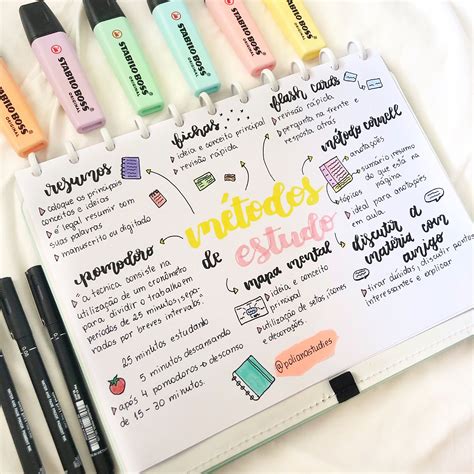 STABILO BOSS
ORIGINAL
STABILO BOSS
ORIGINAL
STABILO BOSS
ORIGINAL
STABILO BOSS
ORIGINAL
STABILO BOSS
ORIGINAL
métodos
de estudo
resumos
coloque os principais
conceitos e ideias
é legal resumir com
suas palavras
manuscrito ou digitado
fichas
ideia e conceito principal
revisão rápida
flash cards
revisão rápida
pergunta na frente e
resposta atrás
método cornell
anotações
sumário resumo
do que está na
página
tópicos
ideal para anotações
em aula
discutir a
matéria com
amigo
tirar dúvidas, discutir pontos
interessantes e explicar
mapa mental
ideia e conceito
principal
utilização de setas, ícones
e decorações
pomodoro
"a técnica consiste na
utilização de um cronômetro
para dividir o trabalho em
períodos de 25 minutos, sepa-
rados por breves intervalos."
25 minutos estudando
5 minutos descansando
após 4 pomodoros → descanso
de 15 - 30 minutos.
@polianastudies